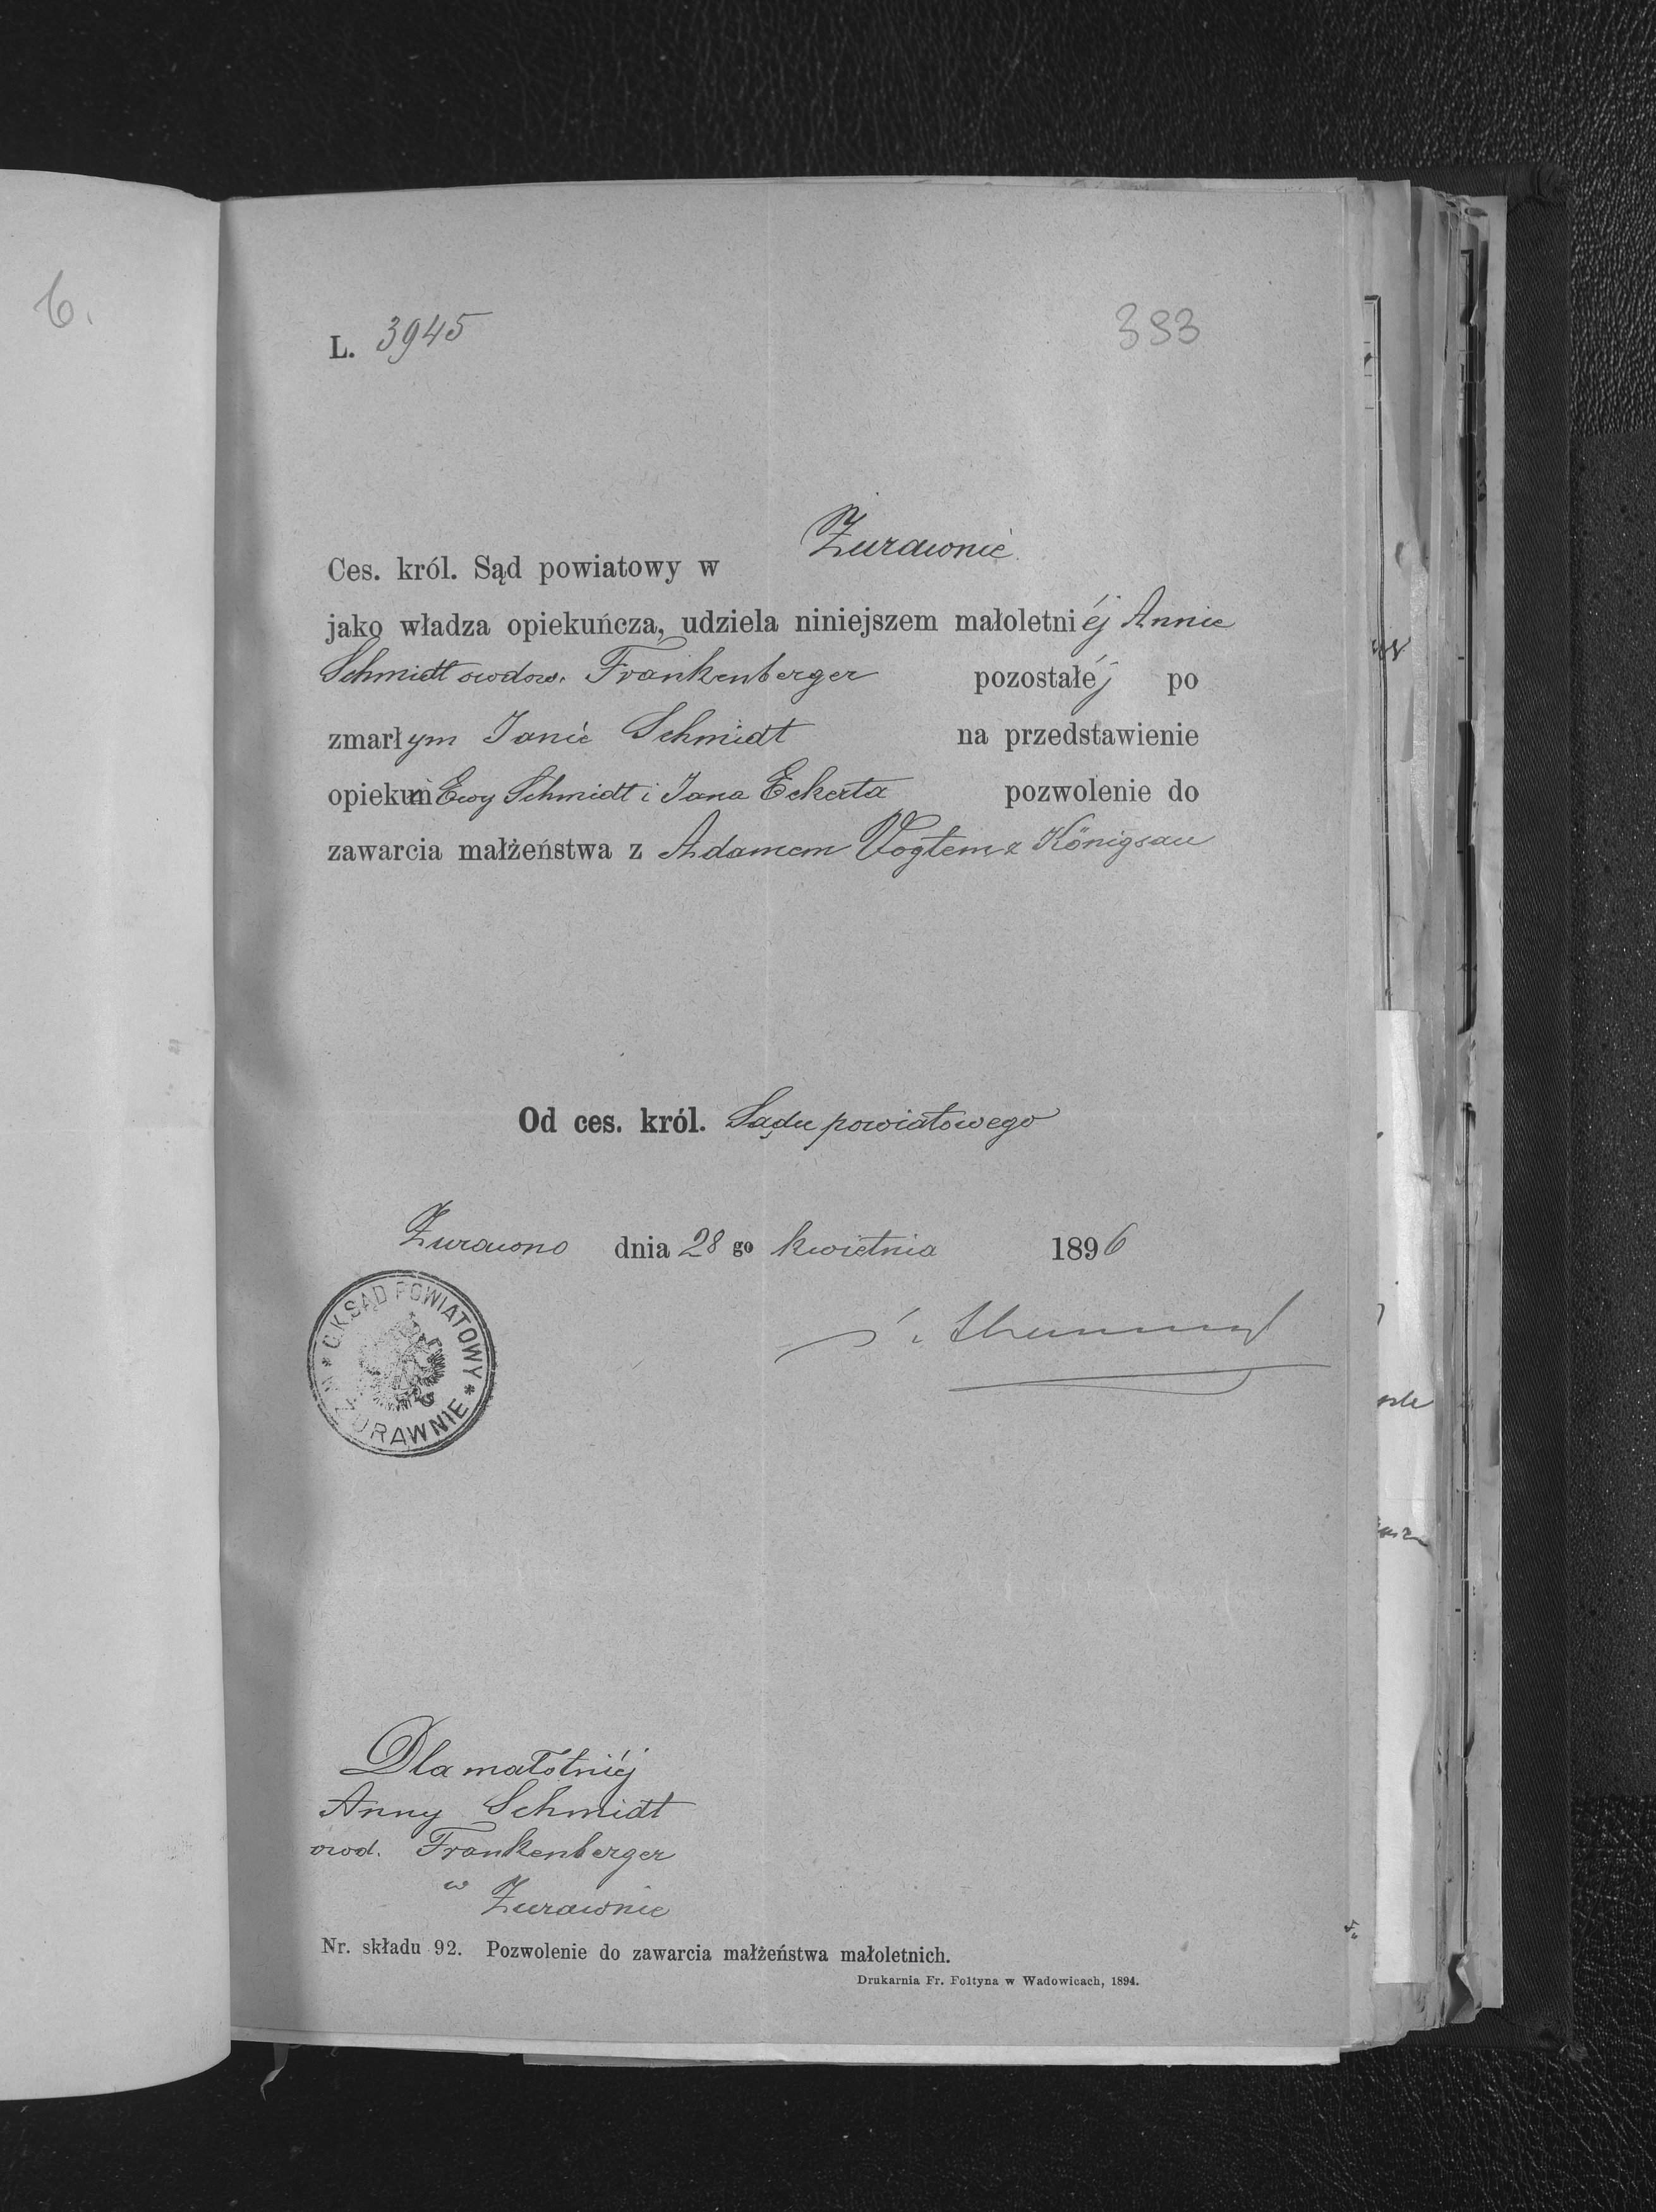 6.
L. 3945
383
Ces. król. Sąd powiatowy w Żurawnie
jako władza opiekuńcza, udziela niniejszem małoletniéj Annie
Schmidt owdow. Frankenberger pozostałéj po
zmarłym Janie Schmidt na przedstawienie
opiekun Ewy Schmidt i Jana Eckerta pozwolenie do
zawarcia małżeństwa z Adamem Vogtem z Königsau
Od ces. król. Sądu powiatowego
Żurawno dnia 28 go kwietnia 1896
C.K. SĄD POWIATOWY * W ŻURAWNIE *
Dla małotniéj
Anny Schmidt
owd. Frankenberger
w Żurawnie
Nr. składu 92. Pozwolenie do zawarcia małżeństwa małoletnich.
Drukarnia Fr. Foltyna w Wadowicach, 1894.